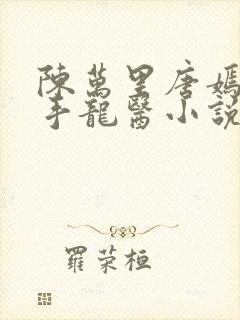 陳萬里唐嫣
手龍醫小說
羅荣桓